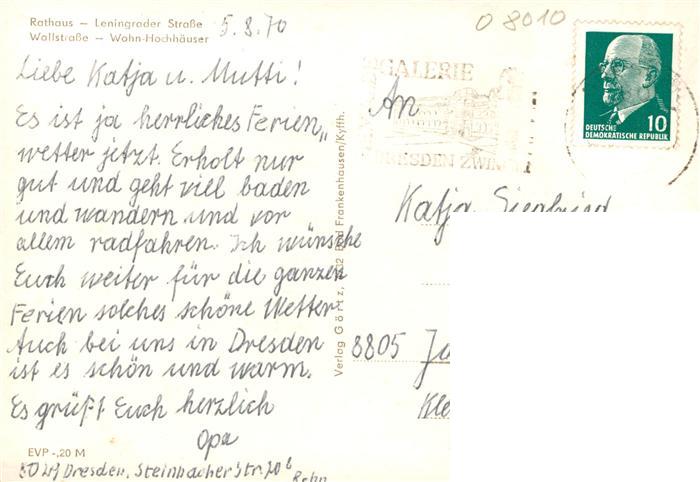 Rathaus — Leningrader Straße
Wallstraße — Wohn-Hochhäuser
5.8.70
O 8010
Liebe Katja u. Mutti!
Es ist ja herrliches Ferien„
wetter jetzt. Erholt nur
gut und geht viel baden
und wandern und vor
allem radfahren. Ich wünsche
Euch weiter für die ganzen
Ferien solches schöne Wetter.
Auch bei uns in Dresden
ist es schön und warm.
Es grüßt Euch herzlich
Opa
EVP -,20 M
8029 Dresden, Steinbacher Str. 70 b
Verlag Görtz, 732 Bad Frankenhausen/Kyffh.
GALERIE
DRESDEN ZWIN
An
Katja Siegfried
8805 Jo
Kle
DEUTSCHE
DEMOKRATISCHE REPUBLIK
10